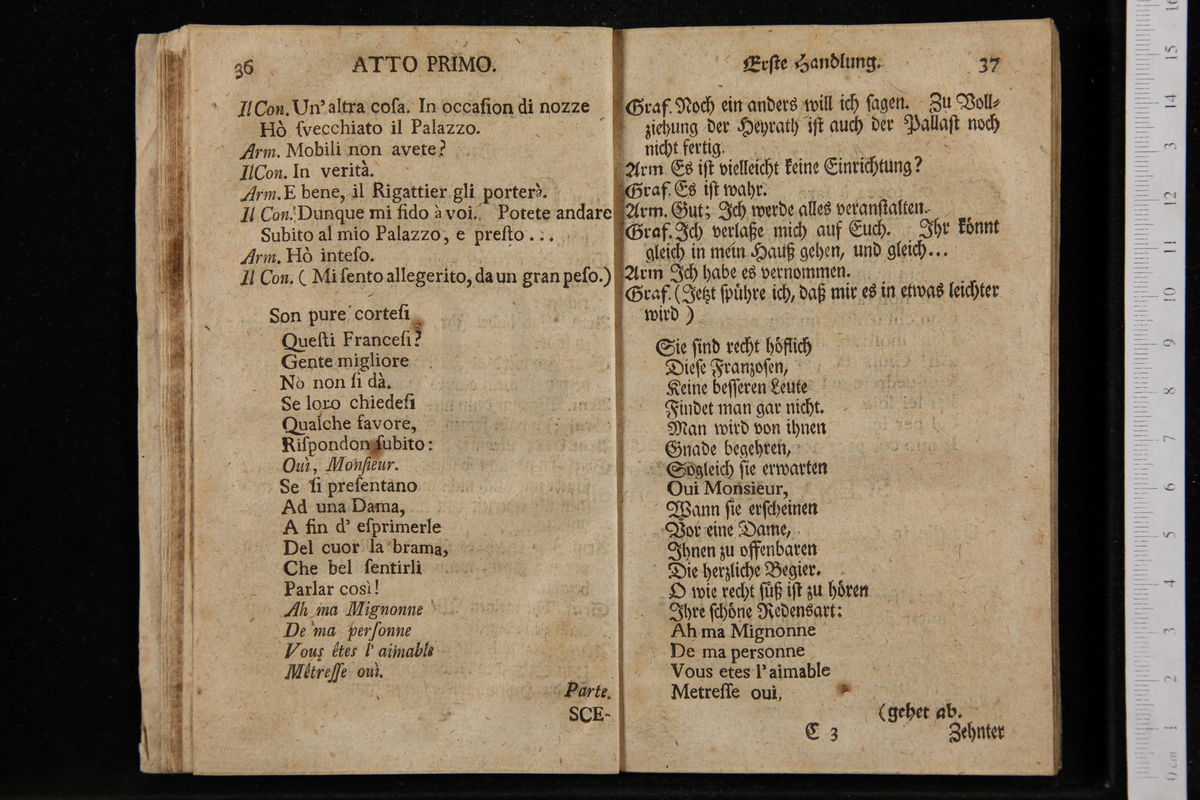 36 ATTO PRIMO.
Il Con. Un' altra coſa. In occaſion di nozze
Hò ſvecchiato il Palazzo.
Arm. Mobili non avete?
Il Con. In verità.
Arm. E bene, il Rigattier gli porterà.
Il Con. Dunque mi fido à voi. Potete andare
Subito al mio Palazzo, e preſto ...
Arm. Hò inteſo.
Il Con. ( Mi ſento allegerito, da un gran peſo.)
Son pure corteſi
Queſti Franceſi?
Gente migliore
Nò non ſi dà.
Se loro chiedeſi
Qualche favore,
Riſpondon ſubito:
Ouì, Monſieur.
Se ſi preſentano
Ad una Dama,
A fin d' eſprimerle
Del cuor la brama,
Che bel ſentirli
Parlar così!
Ah ma Mignonne
De ma perſonne
Vous êtes l' aimable
Mêtreſſe ouì.
Parte.
SCE-
Erſte Handlung. 37
Graf. Noch ein anders will ich ſagen. Zu Voll⸗
ziehung der Heyrath iſt auch der Pallaſt noch
nicht fertig.
Arm Es iſt vielleicht keine Einrichtung?
Graf. Es iſt wahr.
Arm. Gut; Ich werde alles veranſtalten.
Graf. Ich verlaße mich auf Euch. Ihr könnt
gleich in mein Hauß gehen, und gleich...
Arm Ich habe es vernommen.
Graf. (Jetzt ſpühre ich, daß mir es in etwas leichter
wird )
Sie ſind recht höflich
Dieſe Franzoſen,
Keine beſſeren Leute
Findet man gar nicht.
Man wird von ihnen
Gnade begehren,
Sogleich ſie erwarten
Oui Monsieur,
Wann ſie erſcheinen
Vor eine Dame,
Ihnen zu offenbaren
Die herzliche Begier.
O wie recht ſüß iſt zu hören
Ihre ſchöne Redensart:
Ah ma Mignonne
De ma personne
Vous etes l' aimable
Metreſſe oui,
(gehet ab.
C 3 Zehnter
0 cm 1 2 3 4 5 6 7 8 9 10 11 12 3 14 15 16